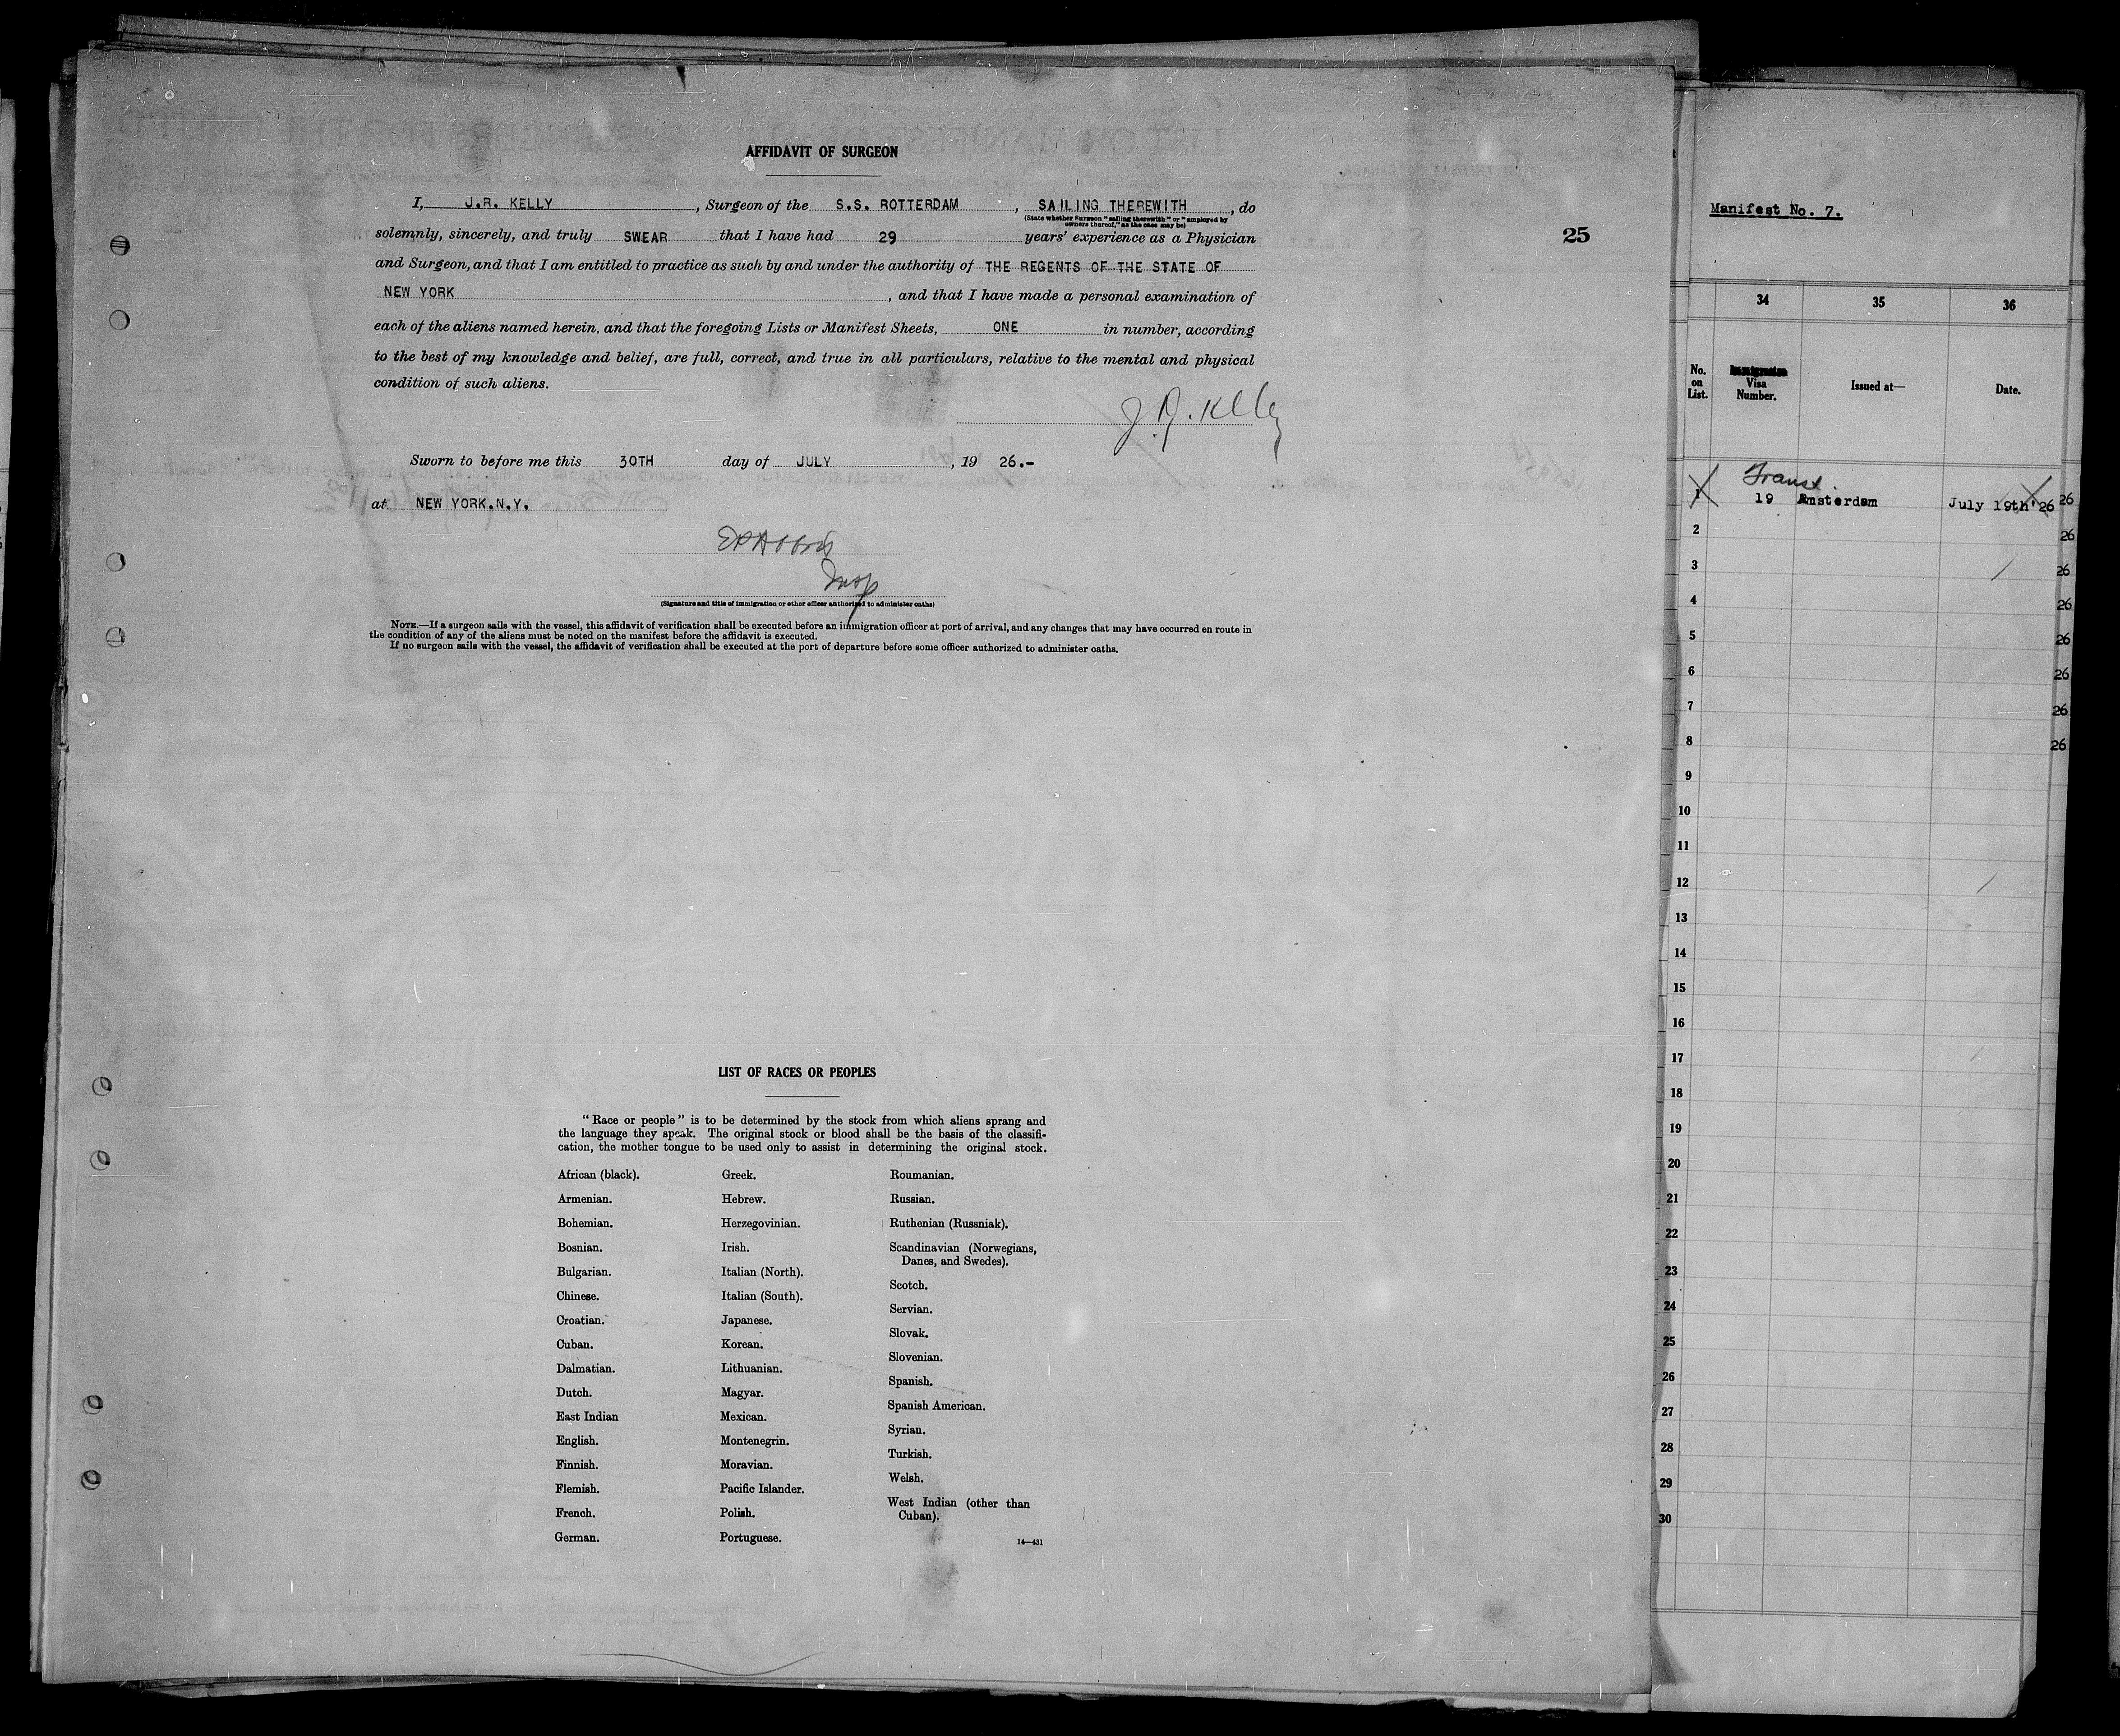 AFFIDAVIT OF SURGEON
I, J.R. KELLY, Surgeon of the S.S. ROTTERDAM, SAILING THEREWITH, do
(State whether Surgeon "sailing therewith" or "employed by
owners thereof," as the case may be)
solemnly, sincerely, and truly SWEAR that I have had 29 years' experience as a Physician
25
and Surgeon, and that I am entitled to practice as such by and under the authority of THE REGENTS OF THE STATE OF
NEW YORK, and that I have made a personal examination of
each of the aliens named herein, and that the foregoing Lists or Manifest Sheets, ONE in number, according
to the best of my knowledge and belief, are full, correct, and true in all particulars, relative to the mental and physical
condition of such aliens.
J.R. Kelly
Sworn to before me this 30TH day of JULY, 19 26.-
at NEW YORK.N.Y.
Insp
(Signature and title of immigration or other officer authorized to administer oaths)
NOTE.—If a surgeon sails with the vessel, this affidavit of verification shall be executed before an immigration officer at port of arrival, and any changes that may have occurred en route in
the condition of any of the aliens must be noted on the manifest before the affidavit is executed.
If no surgeon sails with the vessel, the affidavit of verification shall be executed at the port of departure before some officer authorized to administer oaths.
LIST OF RACES OR PEOPLES
"Race or people" is to be determined by the stock from which aliens sprang and
the language they speak. The original stock or blood shall be the basis of the classifi-
cation, the mother tongue to be used only to assist in determining the original stock.
African (black).
Armenian.
Bohemian.
Bosnian.
Bulgarian.
Chinese.
Croatian.
Cuban.
Dalmatian.
Dutch.
East Indian
English.
Finnish.
Flemish.
French.
German.
Greek.
Hebrew.
Herzegovinian.
Irish.
Italian (North).
Italian (South).
Japanese.
Korean.
Lithuanian.
Magyar.
Mexican.
Montenegrin.
Moravian.
Pacific Islander.
Polish.
Portuguese.
Roumanian.
Russian.
Ruthenian (Russniak).
Scandinavian (Norwegians,
Danes, and Swedes).
Scotch.
Servian.
Slovak.
Slovenian.
Spanish.
Spanish American.
Syrian.
Turkish.
Welsh.
West Indian (other than
Cuban).
14—431
Manifest No. 7.
34 35 36
No.
on
List.
Immigration
Visa
Number.
Issued at—
Date.
Transt.
1 19 Amsterdam July 19th'26 26
2 26
3 26
4 26
5 26
6 26
7 26
8 26
9
10
11
12
13
14
15
16
17
18
19
20
21
22
23
24
25
26
27
28
29
30